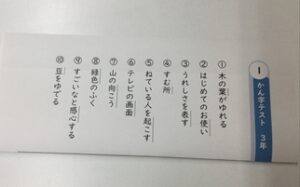 1 かん字テスト 3年
① 木の葉がゆれる
② はじめてのお使い
③ うれしさを表す
④ すむ所
⑤ ねている人を起こす
⑥ テレビの画面
⑦ 山の向こう
⑧ 緑色のふく
⑨ すごいなと感心する
⑩ 豆をゆでる